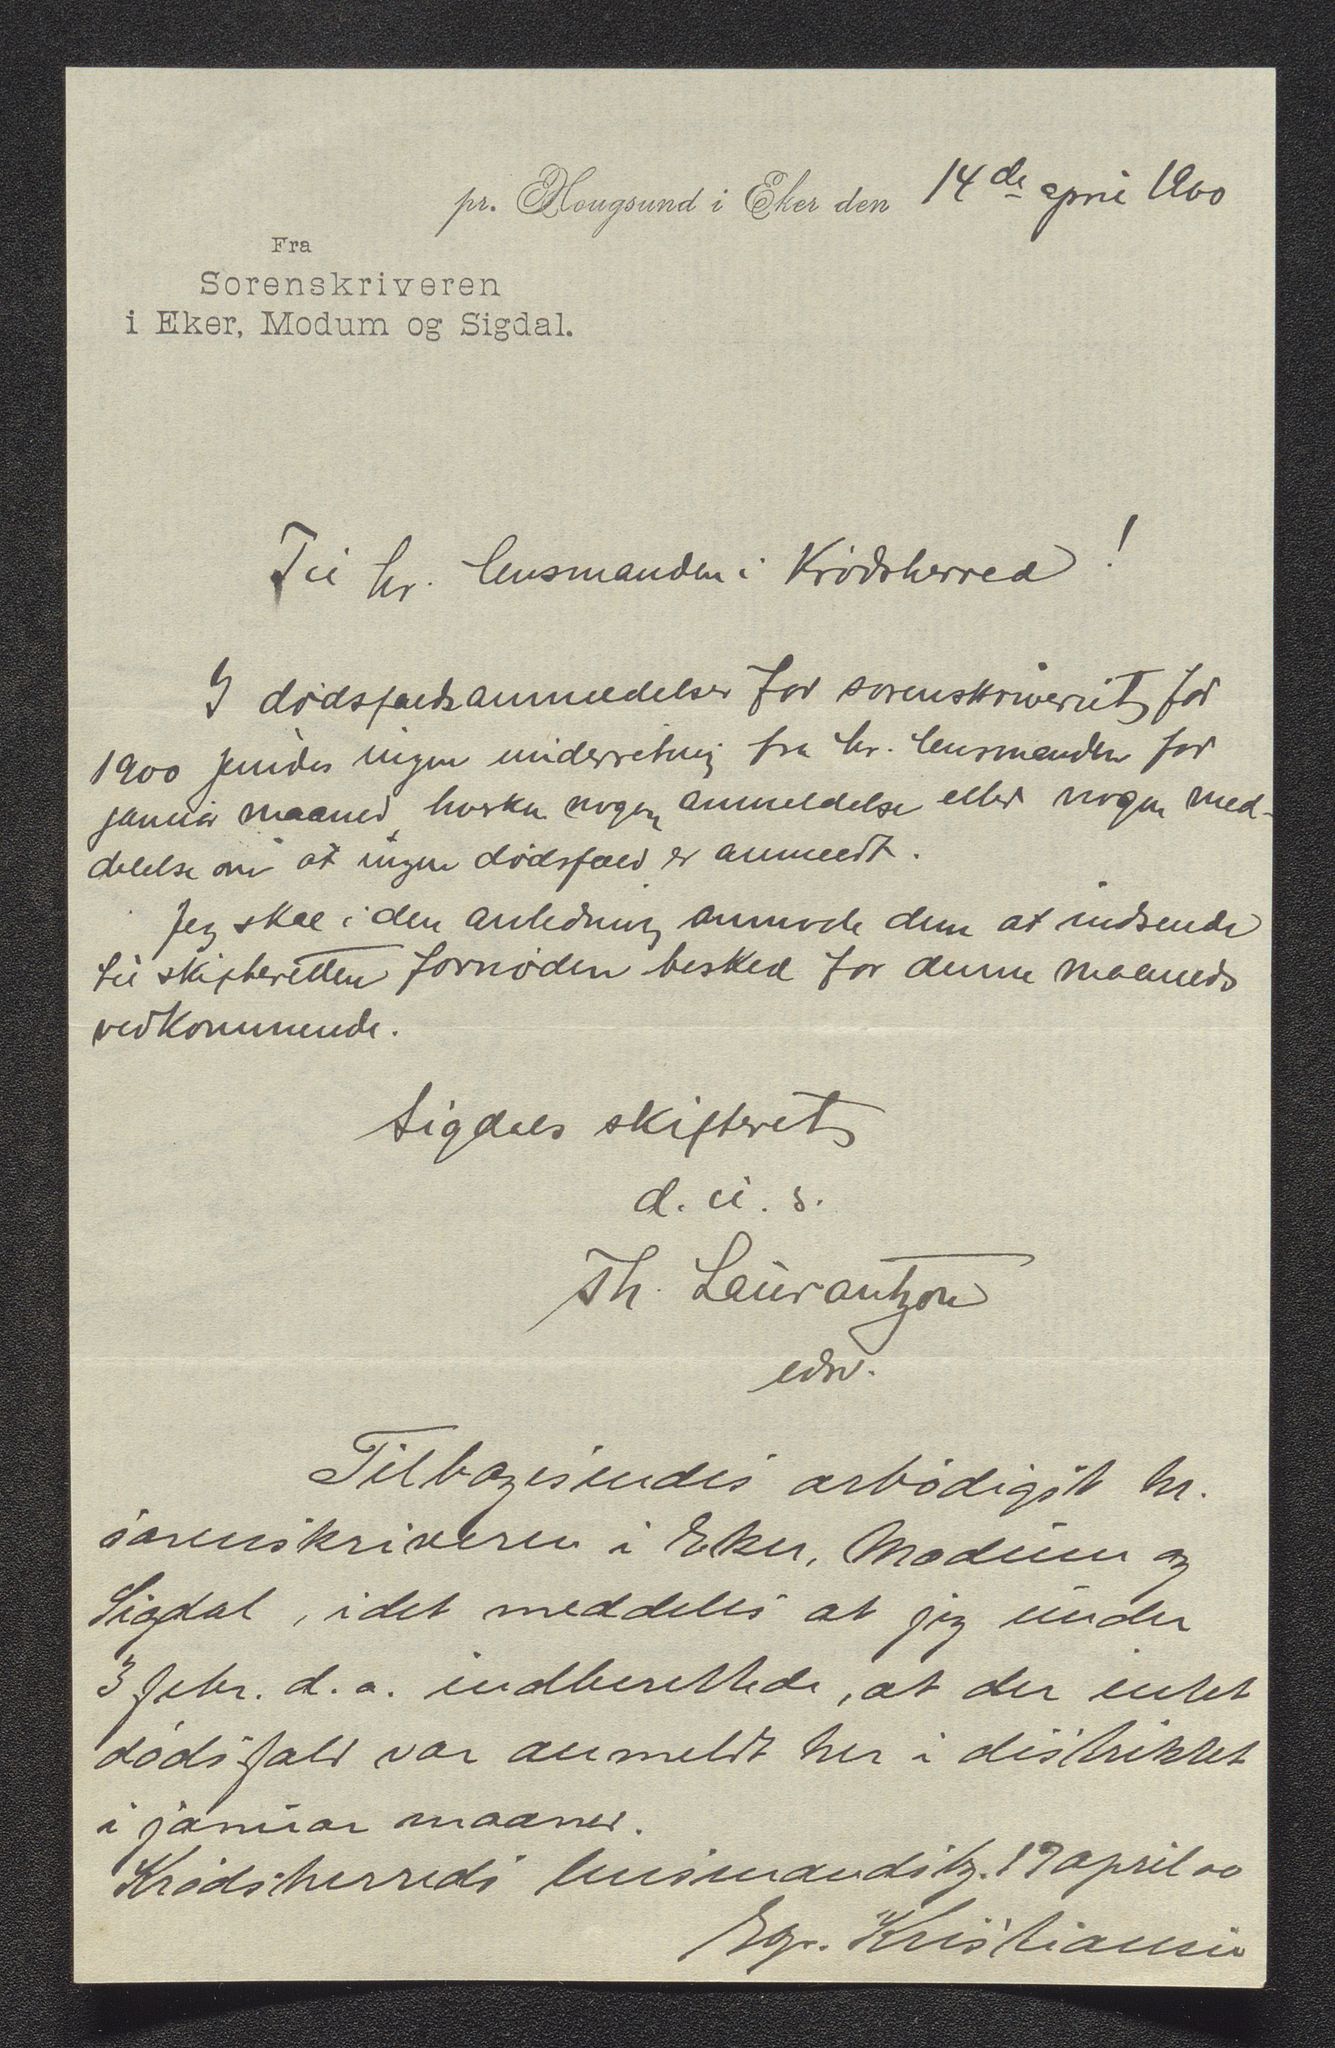 pr. Hougsund i Eker den 14de april 1900
Fra
Sorenskriveren
i Eker, Modum og Sigdal.
Til hr. lensmanden i Krødsherred!
I dødsfaldsanmeldelser for sorenskriveriet for
1900 findes ingen underretning fra hr. lensmanden for
januar maaned, hverken nogen anmeldelse eller nogen med-
delelse om at ingen dødsfald er anmeldt.
Jeg skal i den anledning anmode dem at indsende
til skifteretten fornøden besked for denne maaneds
vedkommende.
Sigdals skifteret
d. u. s.
Th. Laurantzon
edsv.
Tilbagesendes ærbødigst hr.
sorenskriveren i Eker, Modum og
Sigdal, idet meddeles at jeg under
3 febr. d. a. indberettede, at der intet
dødsfald var anmeldt her i distriktet
i januar maaned.
Krødsherreds lensmandsbg. 17 april 00
Egr. Kristiansen